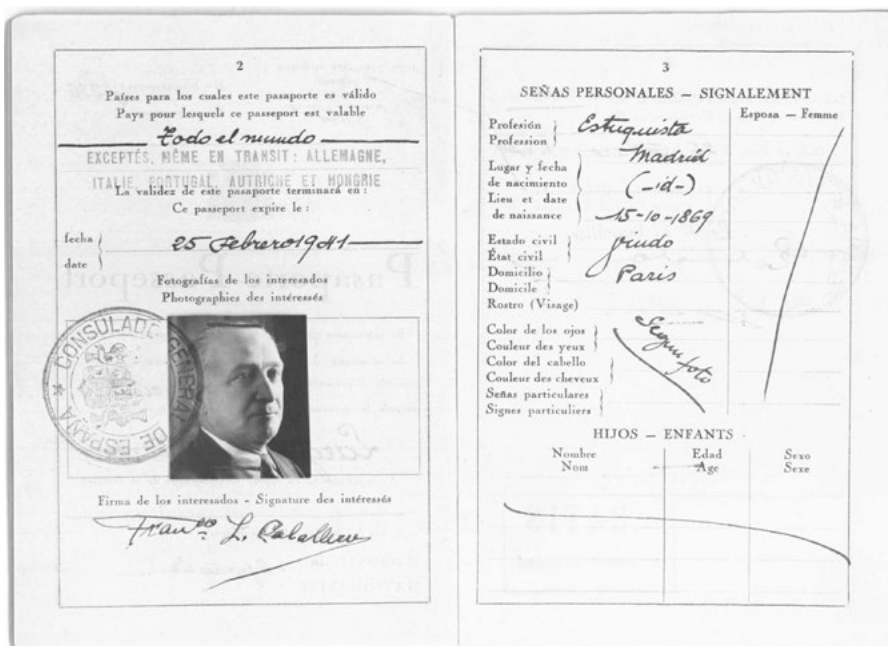 2
Países para los cuales este pasaporte es válido
Pays pour lesquels ce passeport est valable
Todo el mundo
EXCEPTÉS, MÊME EN TRANSIT : ALLEMAGNE,
ITALIE, PORTUGAL, AUTRICHE ET HONGRIE
La validez de este pasaporte terminará en :
Ce passeport expire le :
fecha
date
25 Febrero 1941
Fotografías de los interesados
Photographies des intéressés
CONSULADO GENERAL
DE ESPAÑA
Firma de los interesados - Signature des intéressés
Franco L. Caballero
3
SEÑAS PERSONALES — SIGNALEMENT
Esposa — Femme
Profesión
Profession
Estuquista
Madrid
Lugar y fecha
de nacimiento
(-id-)
Lieu et date
de naissance
15-10-1869
Estado civil
État civil
viudo
Domicilio
Domicile
Paris
Rostro (Visage)
Color de los ojos
Couleur des yeux
Color del cabello
Couleur des cheveux
Según foto
Señas particulares
Signes particuliers
HIJOS — ENFANTS
Nombre Edad Sexo
Nom Age Sexe